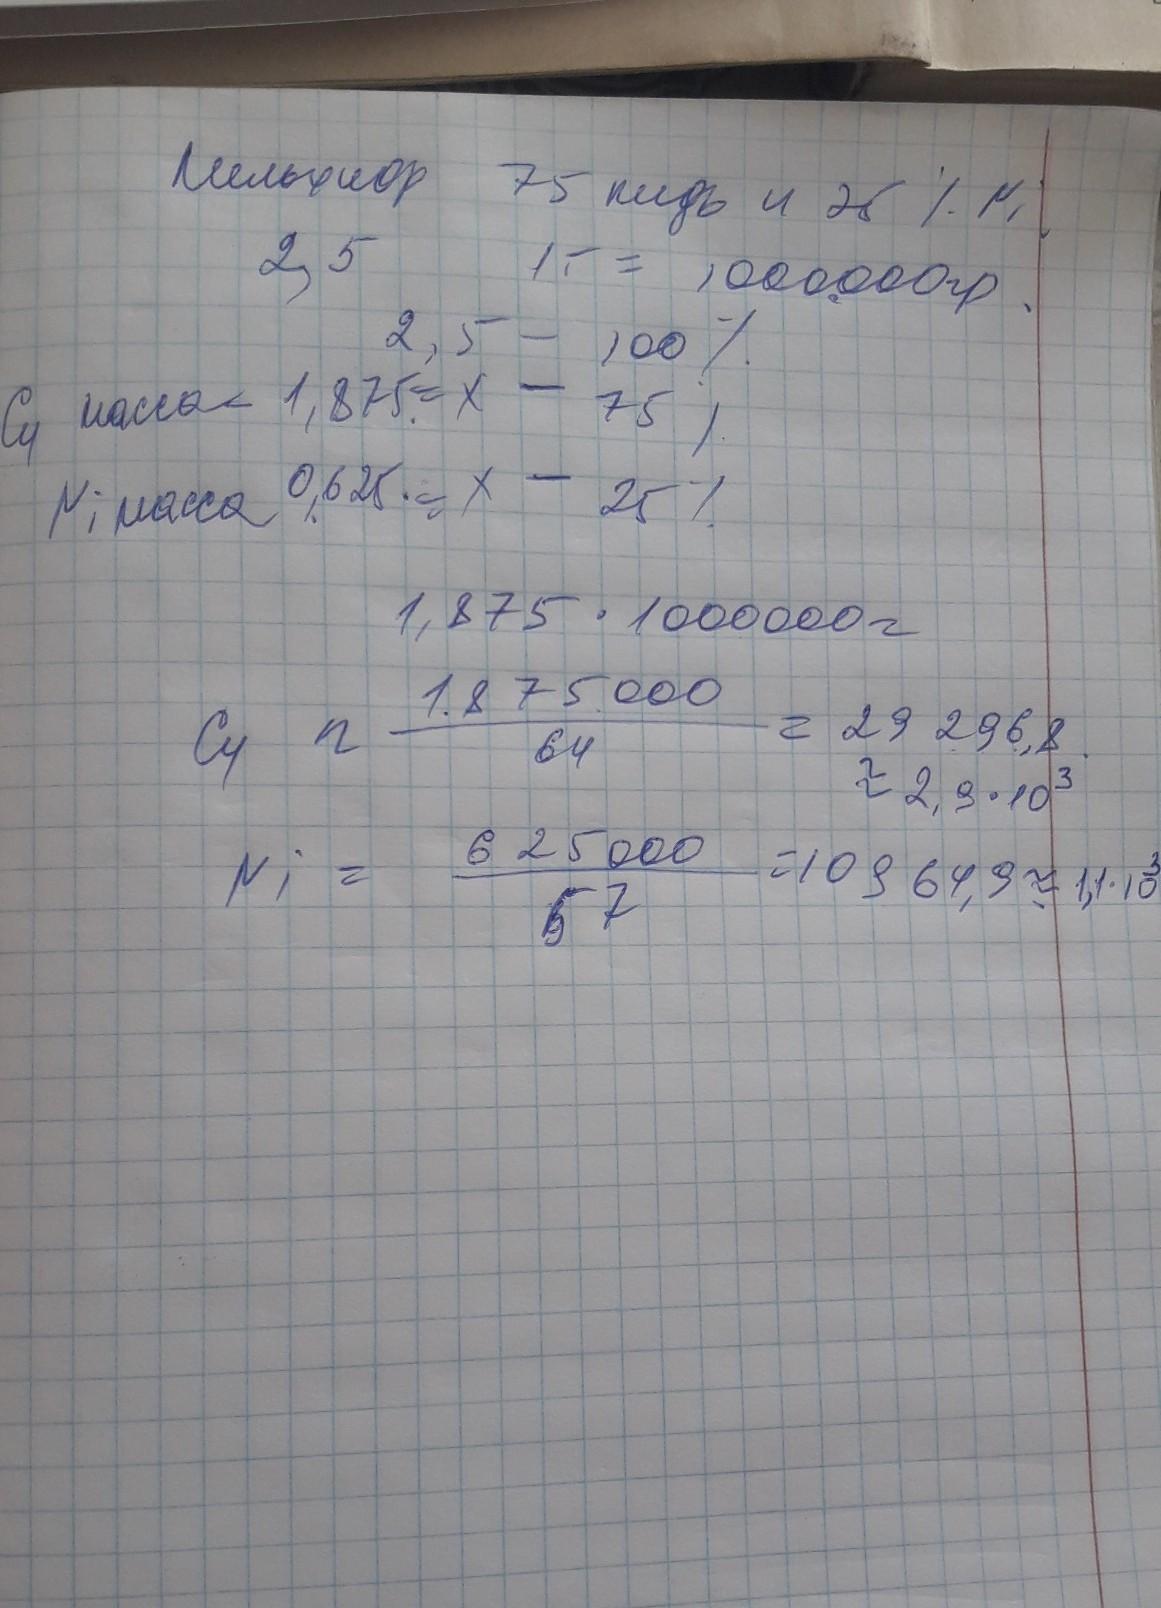 Мельхиор 75 медь и 25 %. Ni
2,5 1т = 1000000гр.
2,5 – 100 %.
Cu масса – 1,875 = x – 75 %.
Ni масса 0,625. = x – 25 %.
1,875 · 1000000 =
Cu n 1.875.000 / 64 = 29 296,8.
≈ 2,9·10³
Ni = 625000 / 57 = 10964,9 ≈ 1,1·10³